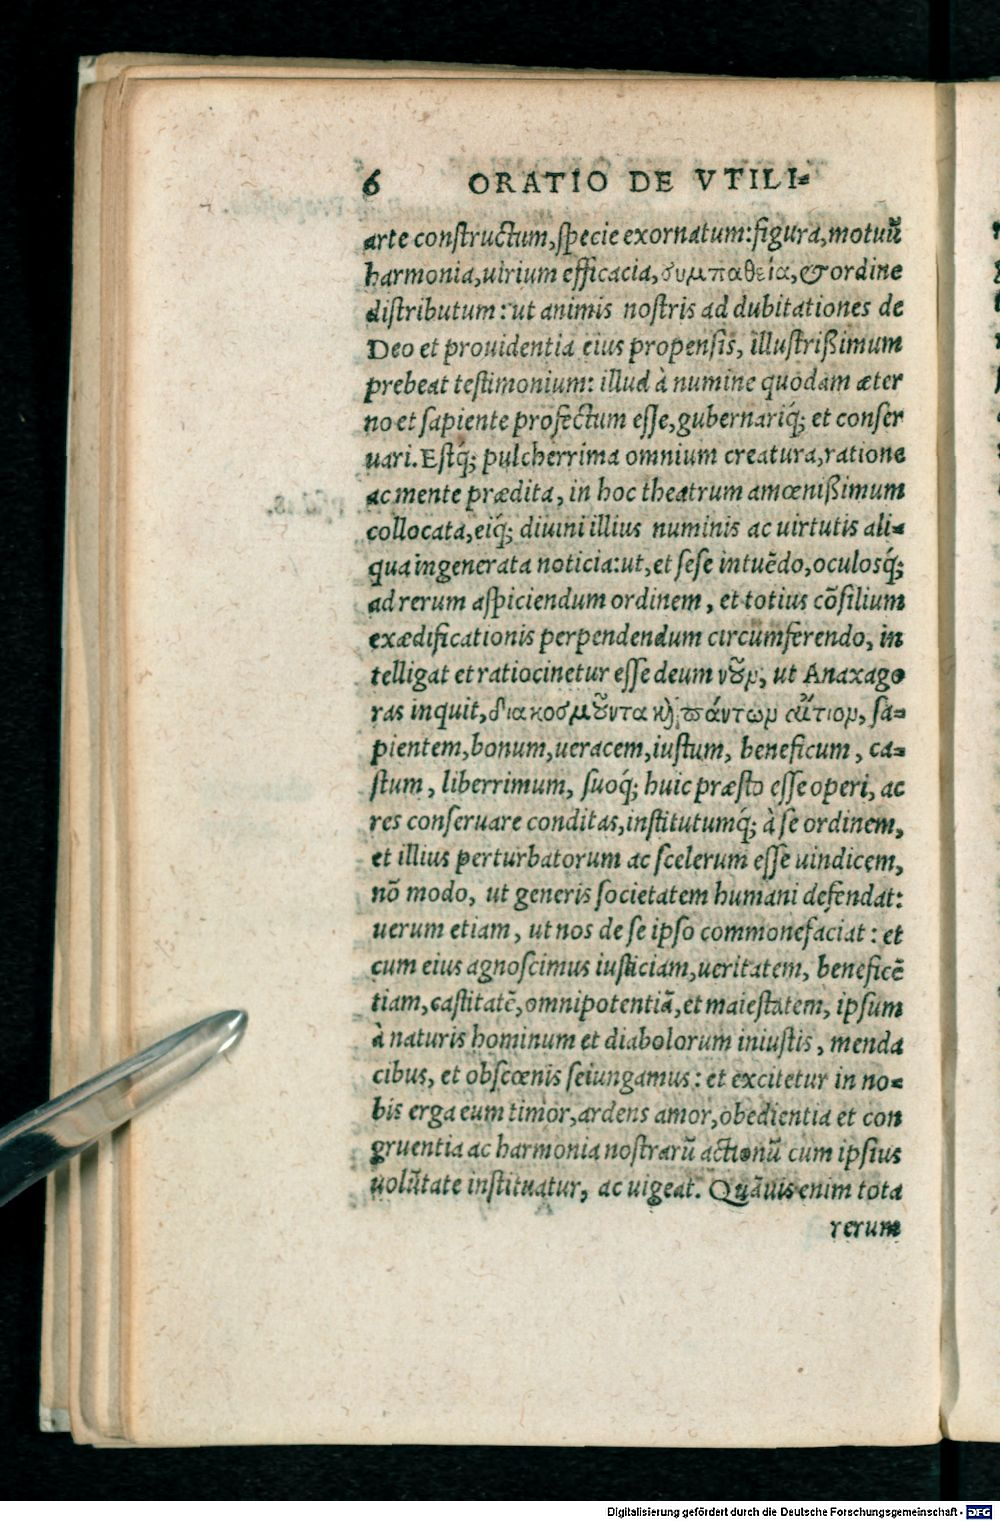 6 ORATIO DE VTILI=
arte constructum, specie exornatum: figura, motuũ
harmonia, uirium efficacia, συμπαθεία, & ordine
distributum: ut animis nostris ad dubitationes de
Deo et prouidentia eius propensis, illustrißimum
prebeat testimonium: illud à numine quodam æter
no et sapiente profectum esse, gubernariq́; et conser
uari. Estq́; pulcherrima omnium creatura, ratione
ac mente prædita, in hoc theatrum amœnißimum
collocata, eiq́; diuini illius numinis ac uirtutis ali=
qua ingenerata noticia: ut, et sese intuẽdo, oculosq́;
ad rerum aspiciendum ordinem, et totius cõsilium
exædificationis perpendendum circumferendo, in
telligat et ratiocinetur esse deum νȣ͂ν, ut Anaxago
ras inquit, διακοσμȣ͂ντα κ̀ πάντων αἴτιον, sa=
pientem, bonum, ueracem, iustum, beneficum, ca=
stum, liberrimum, suoq́; huic præsto esse operi, ac
res conseruare conditas, institutumq́; à se ordinem,
et illius perturbatorum ac scelerum esse uindicem,
nõ modo, ut generis societatem humani defendat:
uerum etiam, ut nos de se ipso commonefaciat: et
cum eius agnoscimus iusticiam, ueritatem, beneficẽ
tiam, castitatẽ, omnipotentiã, et maiestatem, ipsum
à naturis hominum et diabolorum iniustis, menda
cibus, et obscœnis seiungamus: et excitetur in no=
bis erga eum timor, ardens amor, obedientia et con
gruentia ac harmonia nostrarũ actionũ cum ipsius
uolũtate instituatur, ac uigeat. Quãuis enim tota
rerum
Digitalisierung gefördert durch die Deutsche Forschungsgemeinschaft - DFG